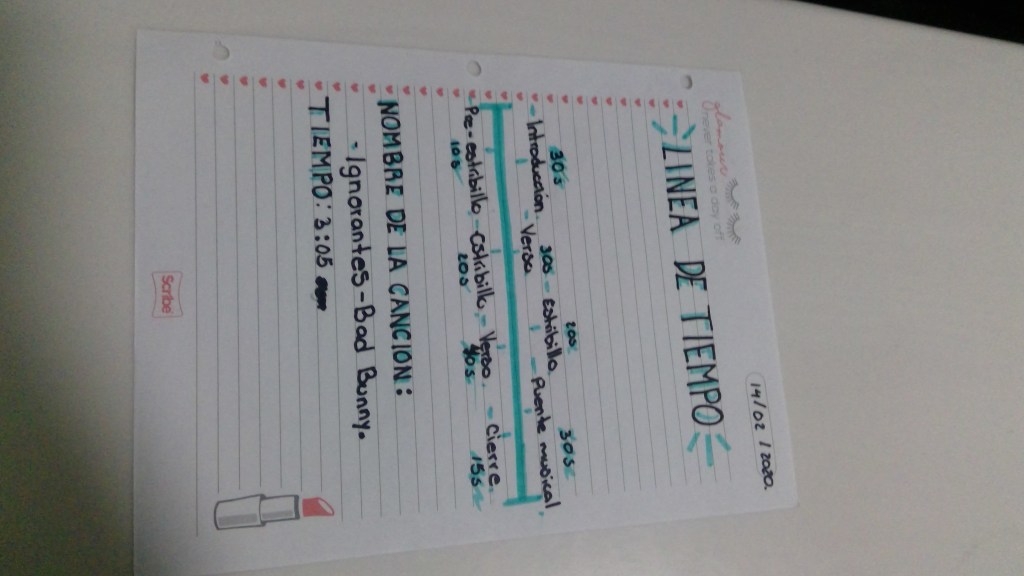 14/02/2020.
Glamour
never takes a day off
LINEA DE TIEMPO
30s 30s 20s 30s
- Introducción. - Verso - Estribillo. - Puente musical.
- Pre-estribillo, - Estribillo, - Verso. - Cierre.
10s 20s 40s 15s
NOMBRE DE LA CANCION:
- Ignorantes - Bad Bunny.
TIEMPO: 3:05
Scribe